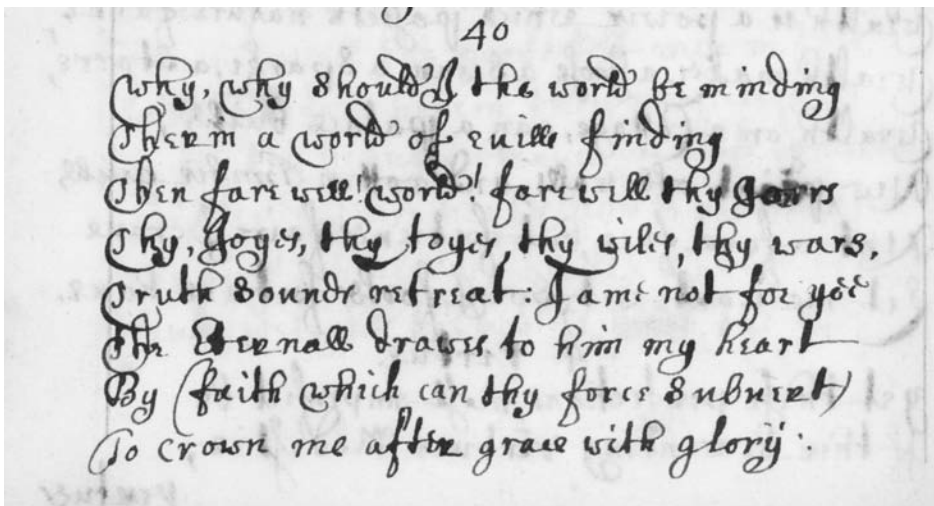 40
Why, Why should I the world be minding
Therin a World of evills finding
Then farewell! World! farewell thy Jarrs
Thy, Joyes, thy toyes, thy wiles, thy wars,
Truth Sounds retreat: I ame not for yee
The Eternall drawes to him my heart
By (faith Which can thy force Subvert)
To crown me after grace with glory: